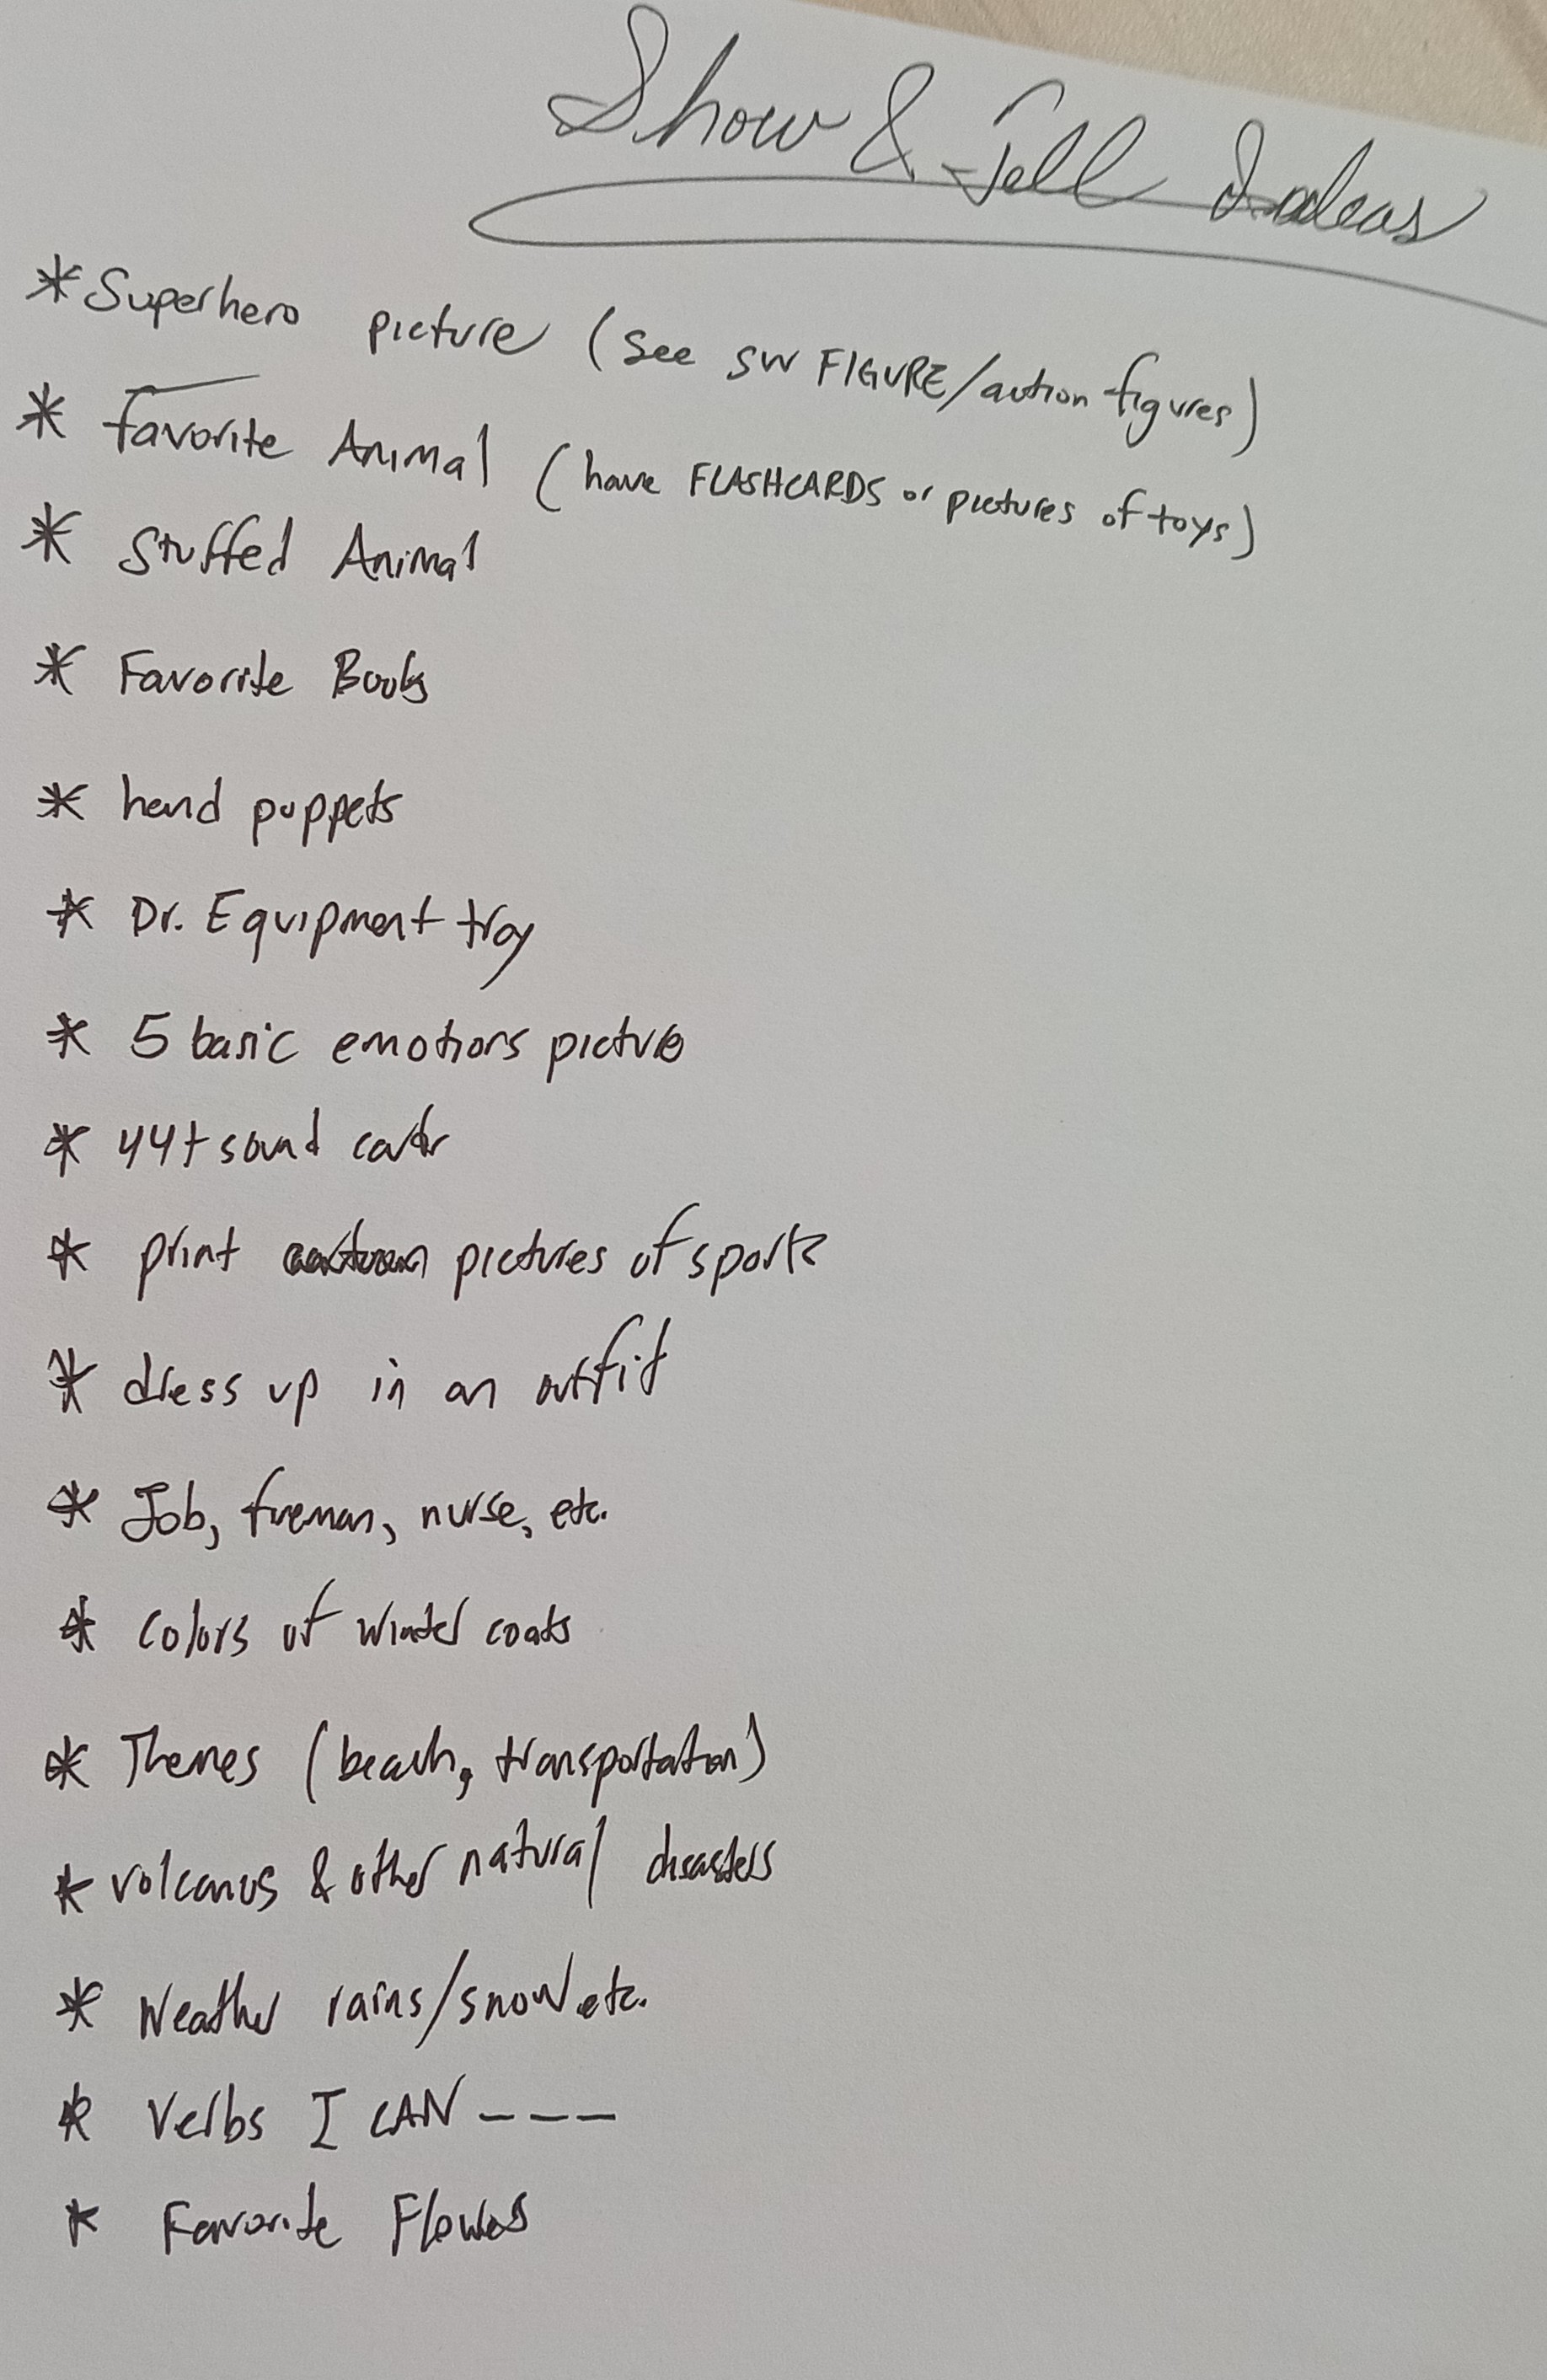 Show & Tell Ideas
* Superhero picture (see SW FIGURE/action figures)
* Favorite Animal (have FLASHCARDS or pictures of toys)
* Stuffed Animal
* Favorite Books
* hand puppets
* Dr. Equipment tray
* 5 basic emotions picture
* 44+ sound cards
* print cartoon pictures of sports
* dress up in an outfit
* Job, fireman, nurse, etc.
* Colors of winter coats
* Themes (beach, transportation)
* volcanos & other natural disasters
* Weather rains/snow etc.
* Verbs I CAN ---
* Favorite Flowers